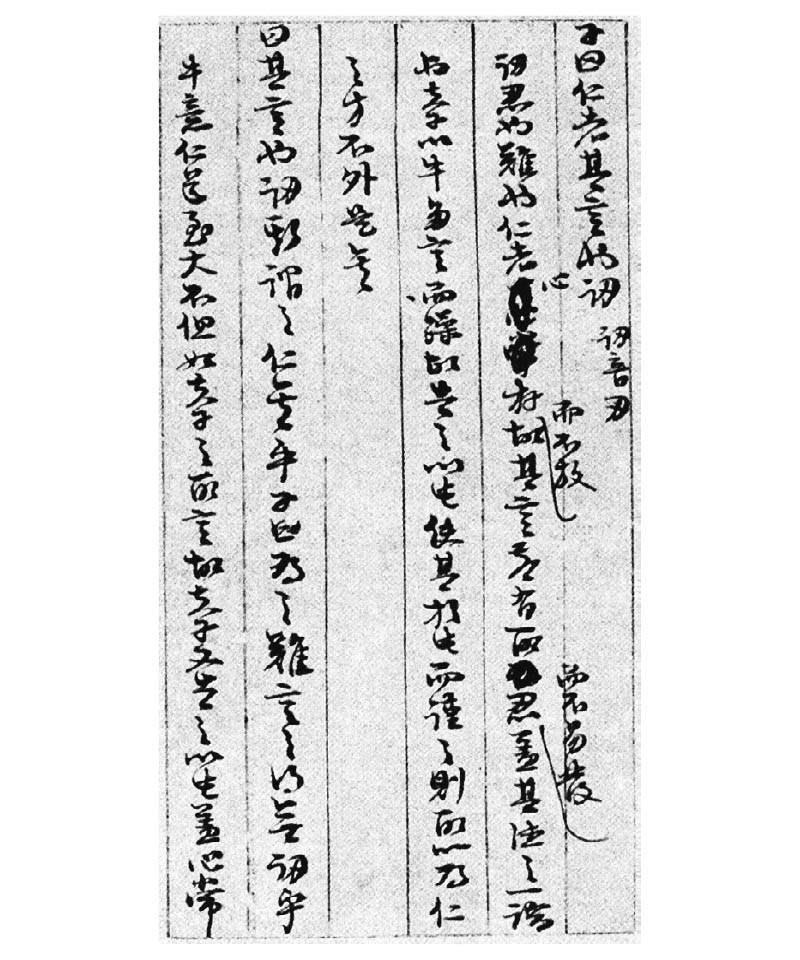 子曰仁者其言也訒 訒音刃
訒忍也難也仁者心存而不放故其言若有所忍而不易發蓋其德之一端
也夫子以牛多言而躁故告之以此使其於此而謹之則所以為仁
之方不外是矣
曰其言也訒斯謂之仁矣乎子曰為之難言之得無訒乎
牛意仁道至大不但如夫子之所言故夫子又告之以此蓋心常